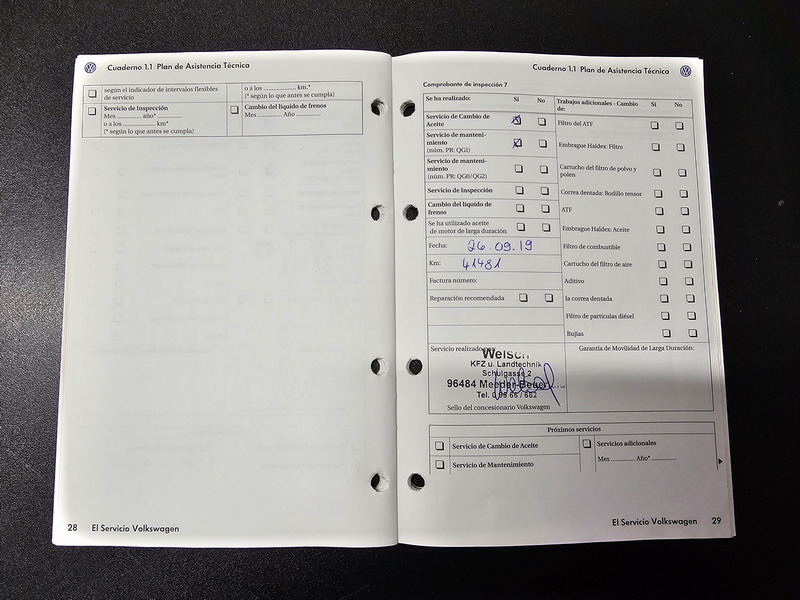 Cuaderno 1.1 Plan de Asistencia Técnica
según el indicador de intervalos flexibles
de servicio
o a los .................. km.*
(* según lo que antes se cumpla)
Servicio de Inspección
Mes ............ año*
o a los .................. km*
(* según lo que antes se cumpla)
Cambio del líquido de frenos
Mes ............ Año ............
28 El Servicio Volkswagen
Cuaderno 1.1 Plan de Asistencia Técnica
Comprobante de inspección 7
Se ha realizado: Sí No
Servicio de Cambio de
Aceite
Servicio de manteni-
miento
(núm. PR: QG1)
Servicio de manteni-
miento
(núm. PR: QG0/QG2)
Servicio de Inspección
Cambio del líquido de
frenos
Se ha utilizado aceite
de motor de larga duración
Fecha: 26.09.19
Km: 41481
Factura número:
Reparación recomendada
Trabajos adicionales - Cambio
de: Sí No
Filtro del ATF
Embrague Haldex: Filtro
Cartucho del filtro de polvo y
polen
Correa dentada: Rodillo tensor
ATF
Embrague Haldex: Aceite
Filtro de combustible
Cartucho del filtro de aire
Aditivo
la correa dentada
Filtro de partículas diésel
Bujías
Servicio realizado por
KFZ u. Landtechnik
Schulgasse 2
96484
Tel.
Sello del concesionario Volkswagen
Garantía de Movilidad de Larga Duración:
Próximos servicios
Servicio de Cambio de Aceite
Servicio de Mantenimiento
Servicios adicionales
Mes ............ Año* ............
El Servicio Volkswagen 29